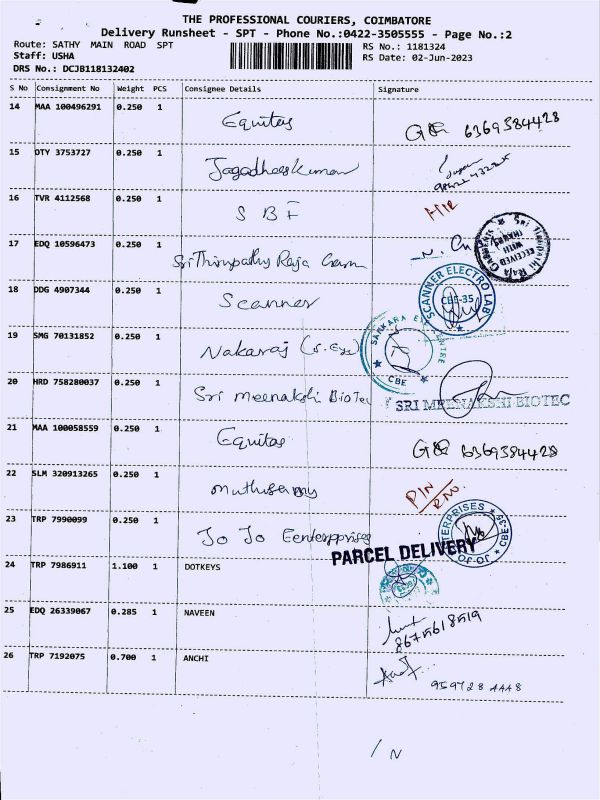 THE PROFESSIONAL COURIERS, COIMBATORE
Delivery Runsheet - SPT - Phone No.:0422-3505555 - Page No.:2
Route: SATHY MAIN ROAD SPT RS No.: 1181324
Staff: USHA RS Date: 02-Jun-2023
DRS No.: DCJB118132402
S No Consignment No Weight PCS Consignee Details Signature
14 MAA 100496291 0.250 1 Equitas 6369384428
15 DTY 3753727 0.250 1 Jagadheeskumar
16 TVR 4112568 0.250 1 S B F
17 EDQ 10596473 0.250 1 Sri Thirupathy Raja Garm
SRI THIRUPATHI RAJA GARMENTS RECEIVED WITH THANKS
18 DDG 4907344 0.250 1 Scanner SCANNER ELECTRO LAB CBE-35
19 SMG 70131852 0.250 1 Nakaraj (S. Eye) SANKARA EYE CENTRE CBE
20 HRD 758280037 0.250 1 Sri meenakshi BioTec SRI MEENAKSHI BIOTEC
21 MAA 100058559 0.250 1 Equitas 6369384428
22 SLM 320913265 0.250 1 muthusamy PIN
23 TRP 7990099 0.250 1 Jo Jo Eenterpprises JO-JO ENTERPRISES CBE-35
PARCEL DELIVERY
24 TRP 7986911 1.100 1 DOTKEYS
25 EDQ 26339067 0.285 1 NAVEEN 8675618519
26 TRP 7192075 0.700 1 ANCHI 959728 4448
/ N